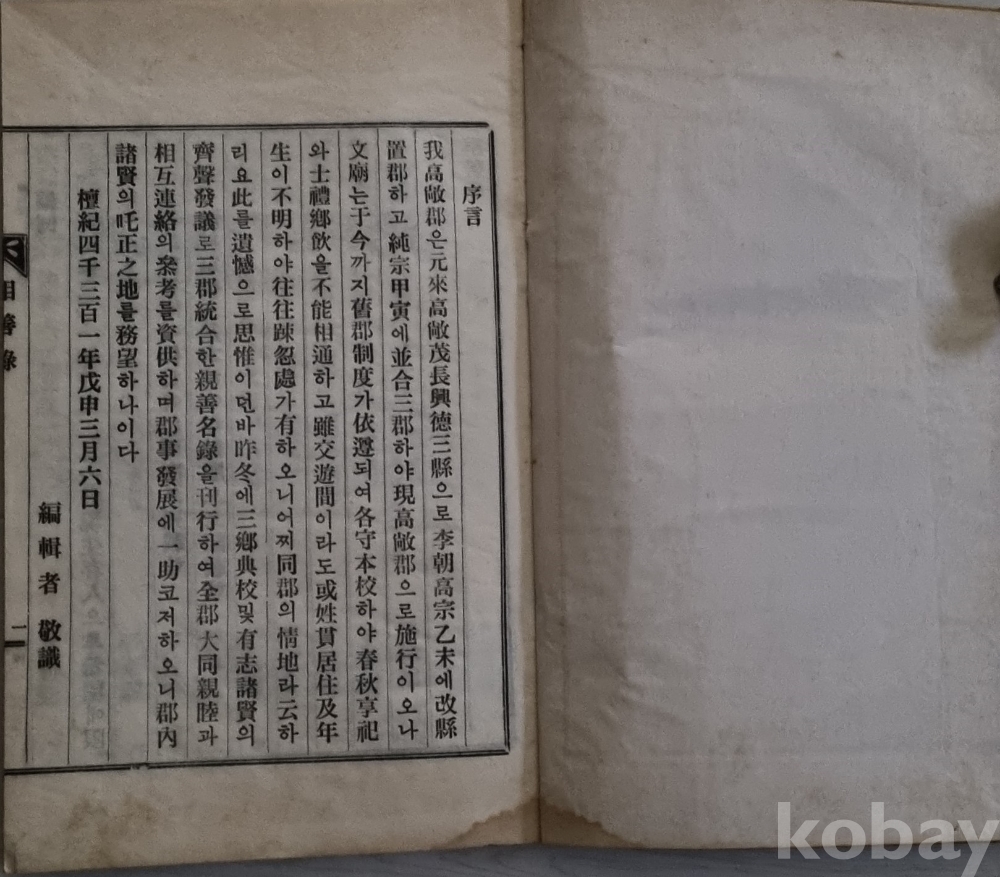 序言
我高敞郡은元來高敞茂長興德三縣으로李朝高宗乙未에改縣
置郡하고純宗甲寅에並合三郡하야現高敞郡으로施行이오나
文廟는于今까지舊郡制度가依遵되여各守本校하야春秋享祀
와士禮鄕飮을不能相通하고雖交遊間이라도或姓貫居住及年
生이不明하야往往踈忽處가有하오니어찌同郡의情地라云하
리요此를遺憾으로思惟이던바昨冬에三鄕典校및有志諸賢의
齊聲發議로三郡統合한親善名錄을刊行하여全郡大同親睦과
相互連絡의叅考를資供하며郡事發展에一助코저하오니郡內
諸賢의叱正之地를務望하나이다
檀紀四千三百一年戊申三月六日
編輯者 敬識
相善錄
一
kobay